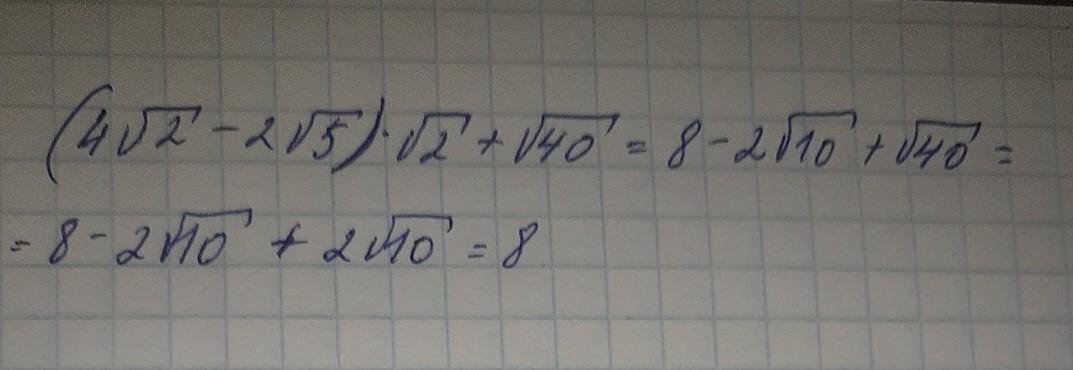 (4√2 - 2√5)·√2 + √40 = 8 - 2√10 + √40 =
= 8 - 2√10 + 2√10 = 8